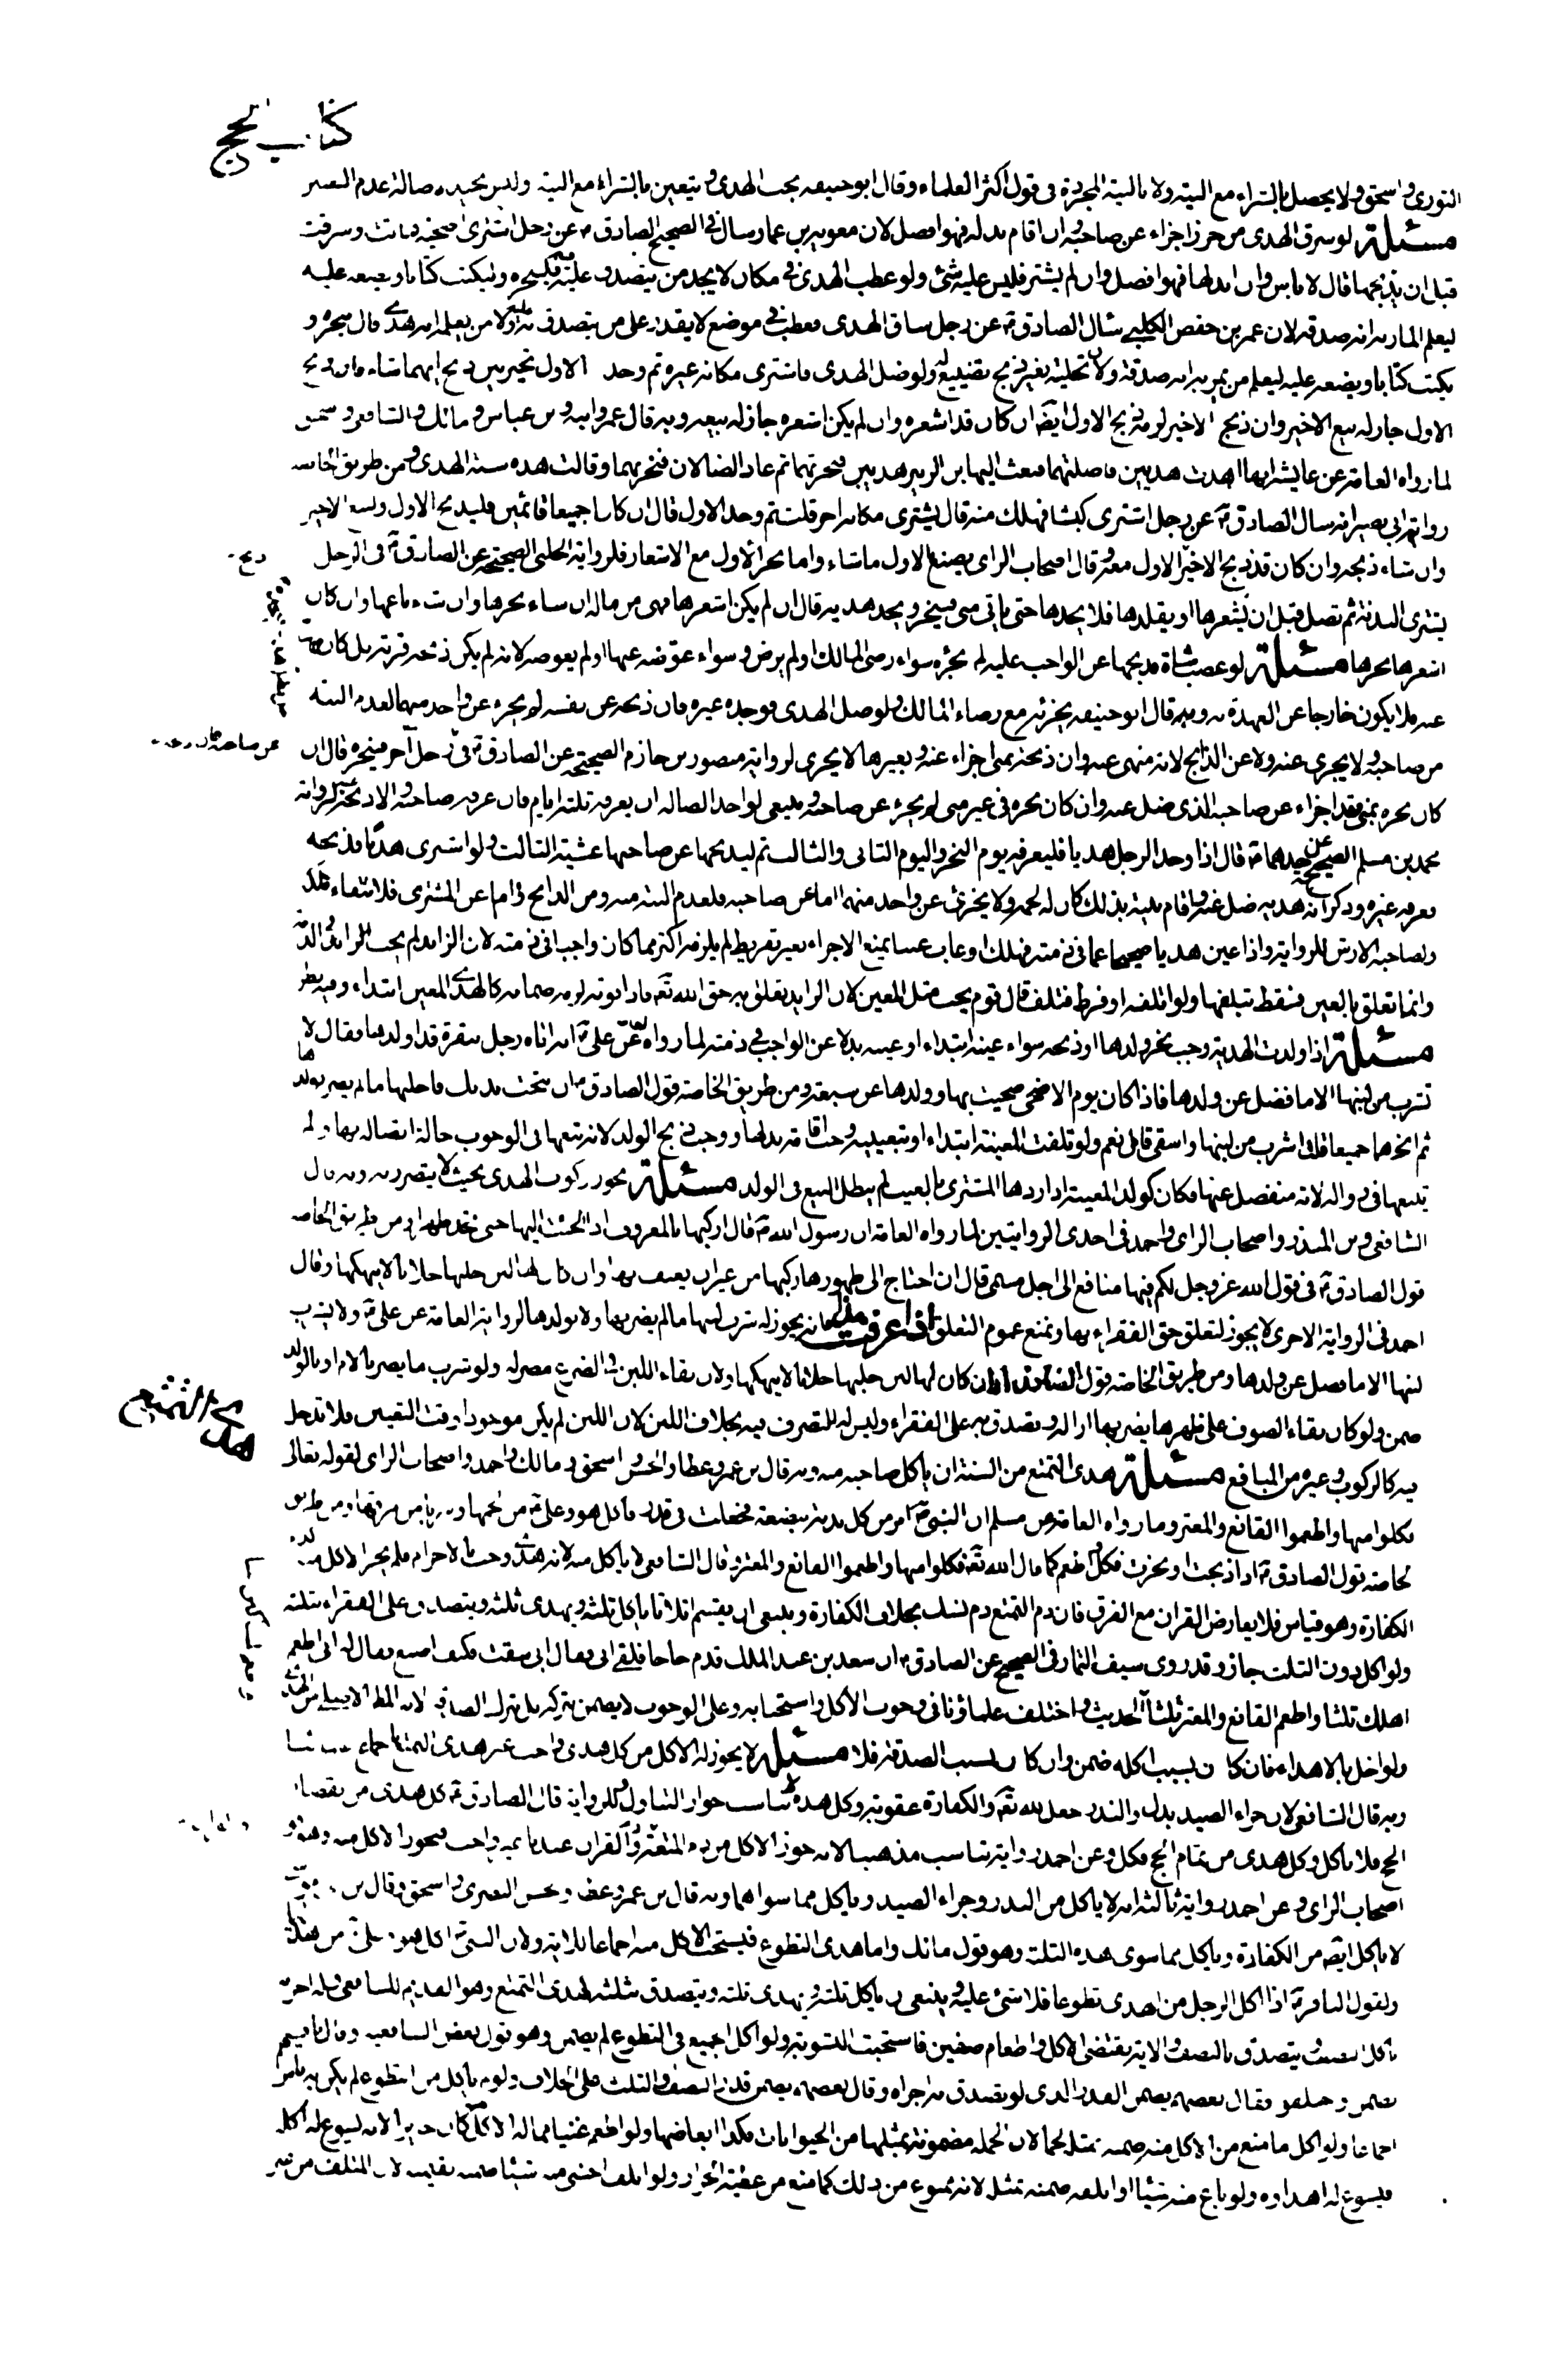 كتاب الحج
الثورى واسحق ولا يحصل بالشراء مع النية ولا بالنية المجردة فى قول اكثر العلماء وقال ابوحنيفه يجب الهدى ويتعين بالشراء مع النية وليس بجيد صالة عدم التعيين
مسئلة لو سرق الهدى من حرز اجزاء عن صاحبه وان اقام بدله فهو افضل لان معويه بن عمار سال فى الصحيح الصادق عن رجل اشترى اضحية فماتت او سرقت
قبل ان يذبحها قال لا باس وان ابدلها فهو افضل وان لم يشتر فليس عليه شئ ولو عطب الهدى فى مكان لا يجد من يتصدق عليه فلينحره وليكتب كتابا ويضعه عليه
ليعلم المار به انه صدقه لان عمر بن حفص الكلبى سال الصادق عن رجل ساق الهدى فعطب فى موضع لا يقدر على من يتصدق به عليه ولا من يعلمه انه هدى قال ينحره و
يكتب كتابا ويضعه عليه ليعلم من يمر به انه صدقة ولان تخليته بغير ذبح تضييع له ولو ضل الهدى فاشترى مكانه غيره ثم وجد الاول تخير بين ذبح ايهما شاء فان ذبح
الاول جاز له بيع الاخير وان ذبح الاخير لزمه ذبح الاول ايضا ان كان قد اشعره وان لم يكن اشعره جاز له بيعه وبه قال عمر وابنه وبن عباس ومالك والشافعى واسحق
لما رواه العامة عن عايشه انها اهدت هديين فاضلتهما فبعث اليها بن الزبير هديين فنحرتهما ثم عاد الضالان فنحرتهما وقالت هذه سنة الهدى ومن طريق الخاصه
رواية ابى بصير انه سال الصادق عن رجل اشترى كبشا فهلك منه قال يشترى مكانه اخر قلت ثم وجد الاول قال ان كانا جميعا قائمين فليذبح الاول وليبع الاخير
وان شاء ذبحه وان كان قد ذبح الاخير ذبح الاول معه وقال اصحاب الراى يصنع بالاول ما شاء واما نحر الاول مع الاشعار فلرواية الحلبى الصحيحة عن الصادق فى الرجل
يشترى البدنة ثم تضل قبل ان يشعرها او يقلدها فلا يجدها حتى ياتى منى فينحر ويجد هديه قال ان لم يكن اشعرها فهى من ماله ان شاء نحرها وان شاء باعها وان كان
اشعرها نحرها مسئلة لو غصب شاة فذبحها عن الواجب عليه لم يجزه سواء رضى المالك او لم يرض وسواء عوضه عنها او لم يعوضه لانه لم يكن ذبحه قربة بل كان
عنه فلا يكون خارجا عن العهدة به وقال ابوحنيفه يجزئه مع رضاء المالك ولو ضل الهدى فوجده غيره فان ذبحه عن نفسه لم يجزء عن واحد منهما لعدم النية
من صاحبه ولا يجزى عنه ولا عن الذابح لانه منهى عنه وان ذبحه بمنى اجزاء عنه وبغيرها لا يجزى لرواية منصور بن حازم الصحيحة عن الصادق فى رجل اخر فينحره قال ان
كان نحره بمنى فقد اجزاء عن صاحبه الذى ضل عنه وان كان نحره فى غير منى لم يجزء عن صاحبه وينبغى لواجد الضاله ان يعرفه ثلثة ايام فان عرفه صاحبه والا ذبحه لرواية
محمد بن مسلم الصحيح عن احدهما قال اذا وجد الرجل هديا فليعرفه يوم النحر واليوم الثانى والثالث ثم ليذبحها عن صاحبها عشية الثالث ولو اشترى هديا فذبحه
فعرفه غيره وذكر انه هديه ضل عنه واقام بينة بذلك كان له لحمه ولا يجزئ عن واحد منهما اما عن صاحبه فلعدم النية منه ومن الذابح واما عن المشترى فلانتفاء ملكه
ولصاحبه الارش للرواية واذا عين هديا صحيحا عما فى ذمته فهلك او عاب عيبا يمنع الاجزاء بغير تفريط لم يلزمه اكثر مما كان واجبا فى ذمته لان الزائد لم يجب فى الذمة
وانما تعلق بالعين فسقط بتلفها ولو اتلفه او فرط فتلف قال قوم يجب مثل المعين لان الزايد تعلق به حق الله تعالى فاذا فوته لزمه ضمانه كالهدى المعين ابتداء وفيه نظر
مسئلة اذا ولدت الهدية وجب نحر ولدها او ذبحه سواء عينه ابتداء او عينه بدلا عن الواجب فى ذمته لما رواه العامة عن على انه اتاه رجل ببقرة قد اولدها فقال لا
تشرب من لبنها الا ما فضل عن ولدها فاذا كان يوم الاضحى ضحيت بها وولدها عن سبعة ومن طريق الخاصه قول الصادق ان نتجت بدنتك فاحلبها ما لم يضر بولدها
ثم انحرهما جميعا قلت اشرب من لبنها واسقى قال نعم ولو تلفت المعينة ابتداء او بتعيينه وجب اقامة بدلها ووجب ذبح الولد لانه تبعها فى الوجوب حالة اتصاله بها ولم
يتبعها فى زواله لانه منفصل عنها فكان كولد المعيبة اذا ردها المشترى بالعيب لم يبطل البيع فى الولد مسئلة يجوز ركوب الهدى بحيث لا يتضرر به وبه قال
الشافعى وبن المنذر واصحاب الراى واحمد فى احدى الروايتين لما رواه العامة ان رسول الله قال اركبها بالمعروف اذا الجئت اليها حتى تجد ظهرا ومن طريق الخاصه
قول الصادق فى قول الله عز وجل لكم فيها منافع الى اجل مسمى قال ان احتاج الى ظهورها ركبها من غير ان يعنف بها وان كان لها لبن حلبها حلابا لا ينهكها وقال
احمد فى الرواية الاخرى لا يجوز لتعلق حق الفقراء بها ونمنع عموم التعلق اذا عرفت هذا فانه يجوز له شرب لبنها ما لم يضر بها ولا بولدها لرواية العامة عن على ولا يشرب
لبنها الا ما فضل عن ولدها ومن طريق الخاصه قول الصادق وان كان لها لبن حلبها حلابا لا ينهكها ولان بقاء اللبن فى الضرع مضر له ولو شرب ما يضر بالام او بالولد
ضمن ولو كان بقاء الصوف على ظهرها يضر بها ازاله وتصدق به على الفقراء وليس له التصرف فيه بخلاف اللبن لان اللبن لم يكن موجودا وقت التعيين فلا يدخل
هدى التمتع
فيه كالركوب وغيره من المنافع مسئلة هدى التمتع من السنة ان ياكل صاحبه منه وبه قال بن عمر وعطا والحسن واسحق ومالك واحمد واصحاب الراى لقوله تعالى
فكلوا منها واطعموا القانع والمعتر وما رواه العامة عن مسلم ان النبى امر من كل بدنة ببضعة فجعلت فى قدر فاكل هو وعلى من لحمها وشربا من مرقها ومن طريق
الخاصه قول الصادق اذا ذبحت او نحرت فكل واطعم كما قال الله تعالى فكلوا منها واطعموا القانع والمعتر وقال الشافعى لا ياكل منه لانه هدى وجب بالاحرام فلم يجز الاكل منه
الكفارة وهو قياس فلا يعارض القران مع الفرق فان دم التمتع دم نسك بخلاف الكفارة وينبغى ان يقسم اثلاثا ياكل ثلثه ويهدى ثلثه ويتصدق على الفقراء بثلثه
ولو اكل دون الثلث جاز وقد روى سيف التمار فى الصحيح عن الصادق ان سعد بن عبد الملك قدم حاجا فلقى ابى فقال انى سقت هديا فكيف اصنع فقال له ابى اطعم
اهلك ثلثا واطعم القانع والمعتر ثلثا الحديث واختلف علماؤنا فى وجوب الاكل واستحبابه وعلى الوجوب لا يضمن بتركه بل بترك الصدقة
ولو اخل بالاهداء فان كان بسبب اكله ضمن وان كان لسبب الصدقة فلا مسئلة لا يجوز له الاكل من كل هدى واجب غير هدى التمتع باجماع علمائنا
وبه قال الشافعى لان جزاء الصيد بدل والنذر جعل لله تعالى والكفارة عقوبة وكل هذه لا تناسب جواز التناول وللرواية قال الصادق كل هدى من نقصان
الحج فلا ياكل وكل هدى من تمام الحج فكل وعن احمد رواية تناسب مذهبنا لانه جوز الاكل من دم المتعة والقران عندنا غير واجب فيجوز الاكل منه وهو قول
اصحاب الراى وعن احمد رواية ثالثه انه لا ياكل من النذر وجزاء الصيد وياكل مما سواهما وبه قال بن عمر وعطا والحسن البصرى واسحق وقال بن
لا ياكل ايضا من الكفارة وياكل مما سوى هذه الثلثة وهو قول مالك واما هدى التطوع فيستحب الاكل منه اجماعا للاية ولان النبى اكل هو وعلى من
ولقول الباقر اذا اكل الرجل من الهدى تطوعا فلا شئ عليه وينبغى ان ياكل ثلثه ويهدى ثلثه ويتصدق بثلثه كهدى التمتع وهو القديم للشافعى وله اخر انه
ياكل النصف ويتصدق بالنصف والاية تقتضى الاكل واطعام صنفين فاستحبت التسوية ولو اكل الجميع فى التطوع لم يضمن وهو قول بعض الشافعيه وقال باقيهم
يضمن واختلفوا فقال بعضهم يضمن القدر الذى لو تصدق به اجزاه وقال بعضهم يضمن قدر النصف او الثلث على الخلاف ولو لم ياكل من التطوع لم يكن به باس
اجماعا ولو اكل ما منع من الاكل منه ضمنه بمثله لحما لان الجملة مضمونة بمثلها من الحيوانات فكذا ابعاضها ولو اطعم غنيا مما له الاكل كان جايزا لانه يسوغ له اكله
فيسوغ له اهداؤه ولو باع منه شيئا او اتلفه ضمنه بمثله لانه ممنوع من ذلك كما منع من عطية الجزار ولو اتلف اجنبى منه شيئا ضمنه بقيمته لان المتلف من غير